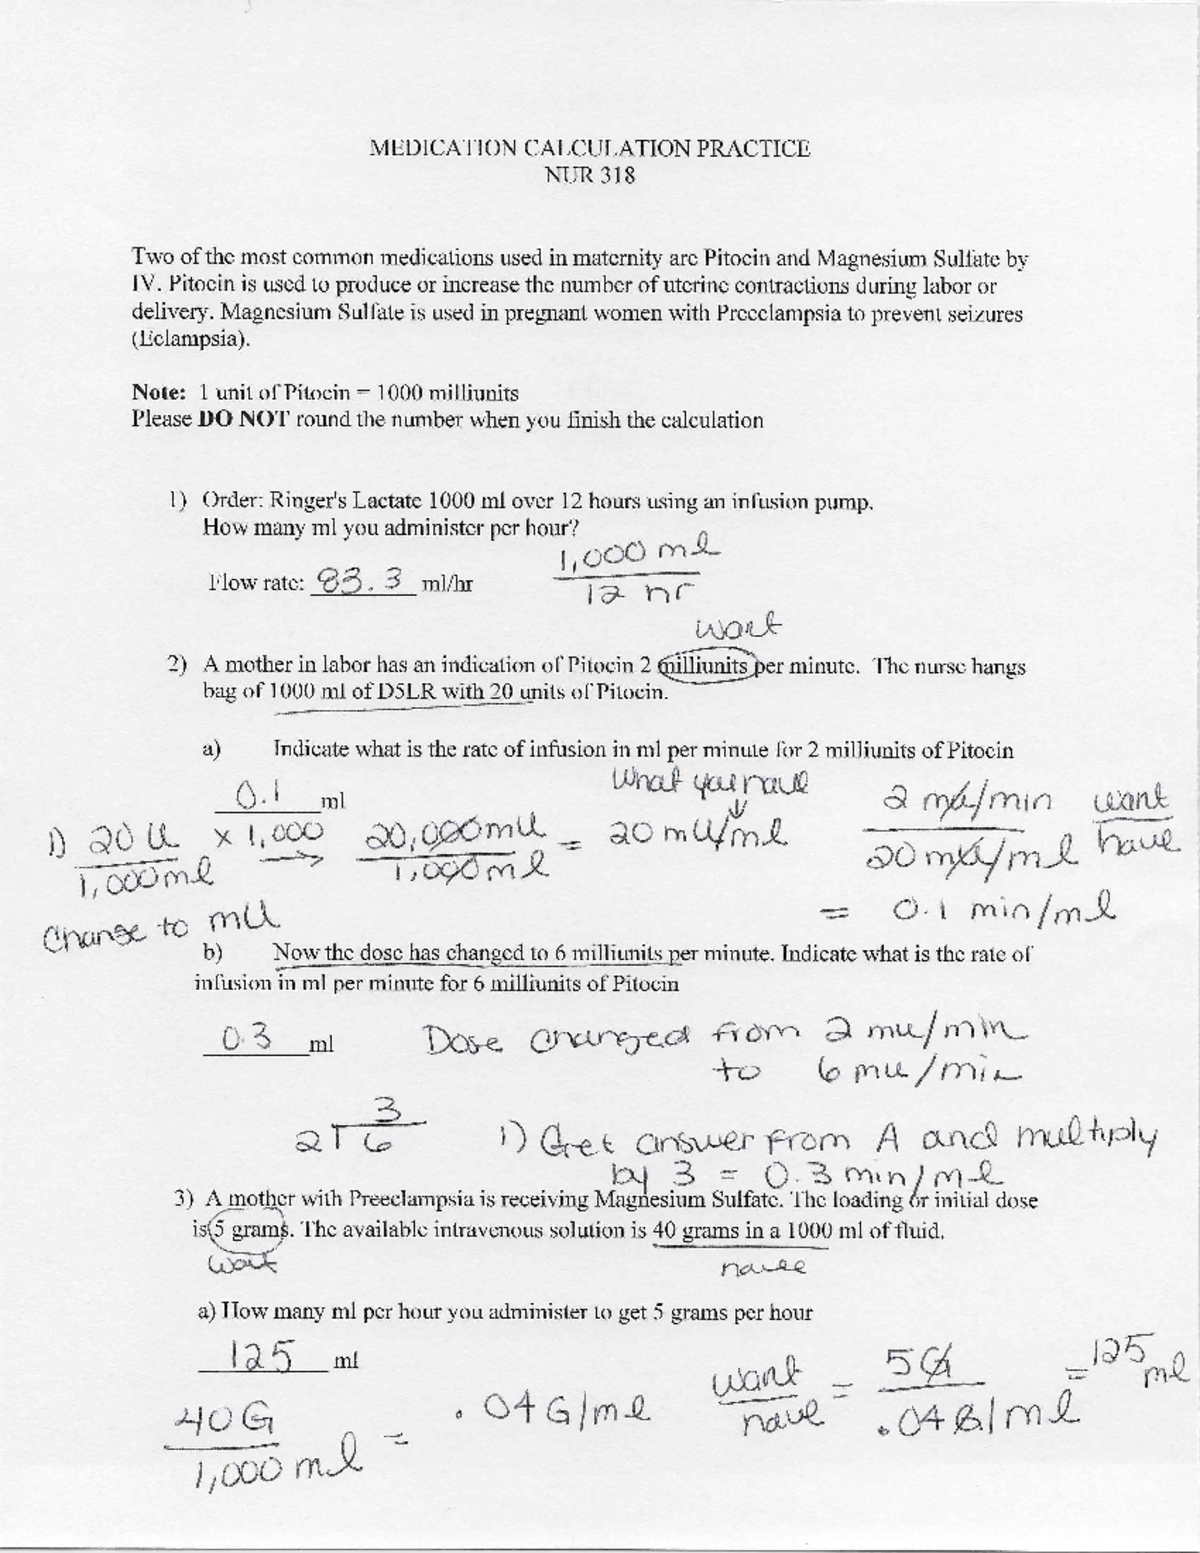 MEDICATION CALCULATION PRACTICE
NUR 318
Two of the most common medications used in maternity are Pitocin and Magnesium Sulfate by
IV. Pitocin is used to produce or increase the number of uterine contractions during labor or
delivery. Magnesium Sulfate is used in pregnant women with Preeclampsia to prevent seizures
(Eclampsia).
Note: 1 unit of Pitocin = 1000 milliunits
Please DO NOT round the number when you finish the calculation
1) Order: Ringer's Lactate 1000 ml over 12 hours using an infusion pump.
How many ml you administer per hour?
Flow rate: 83.3 ml/hr
1,000 ml
12 hr
want
2) A mother in labor has an indication of Pitocin 2 milliunits per minute. The nurse hangs
bag of 1000 ml of D5LR with 20 units of Pitocin.
a) Indicate what is the rate of infusion in ml per minute for 2 milliunits of Pitocin
0.1 ml
What you have
2 mu/min want
1) 20 U x 1,000 20,000 mU = 20 mU/ml
1,000 ml 1,000 ml
20 mu/ml have
= 0.1 min/ml
Change to mU
b) Now the dose has changed to 6 milliunits per minute. Indicate what is the rate of
infusion in ml per minute for 6 milliunits of Pitocin
0.3 ml Dose changed from 2 mu/min
to 6 mu/min
3
2 6 1) Get answer from A and multiply
by 3 = 0.3 min/ml
3) A mother with Preeclampsia is receiving Magnesium Sulfate. The loading or initial dose
is 5 grams. The available intravenous solution is 40 grams in a 1000 ml of fluid.
want have
a) How many ml per hour you administer to get 5 grams per hour
125 ml
40 G = .04 G/ml want = 5 G = 125 ml
1,000 ml have .04 G/ml